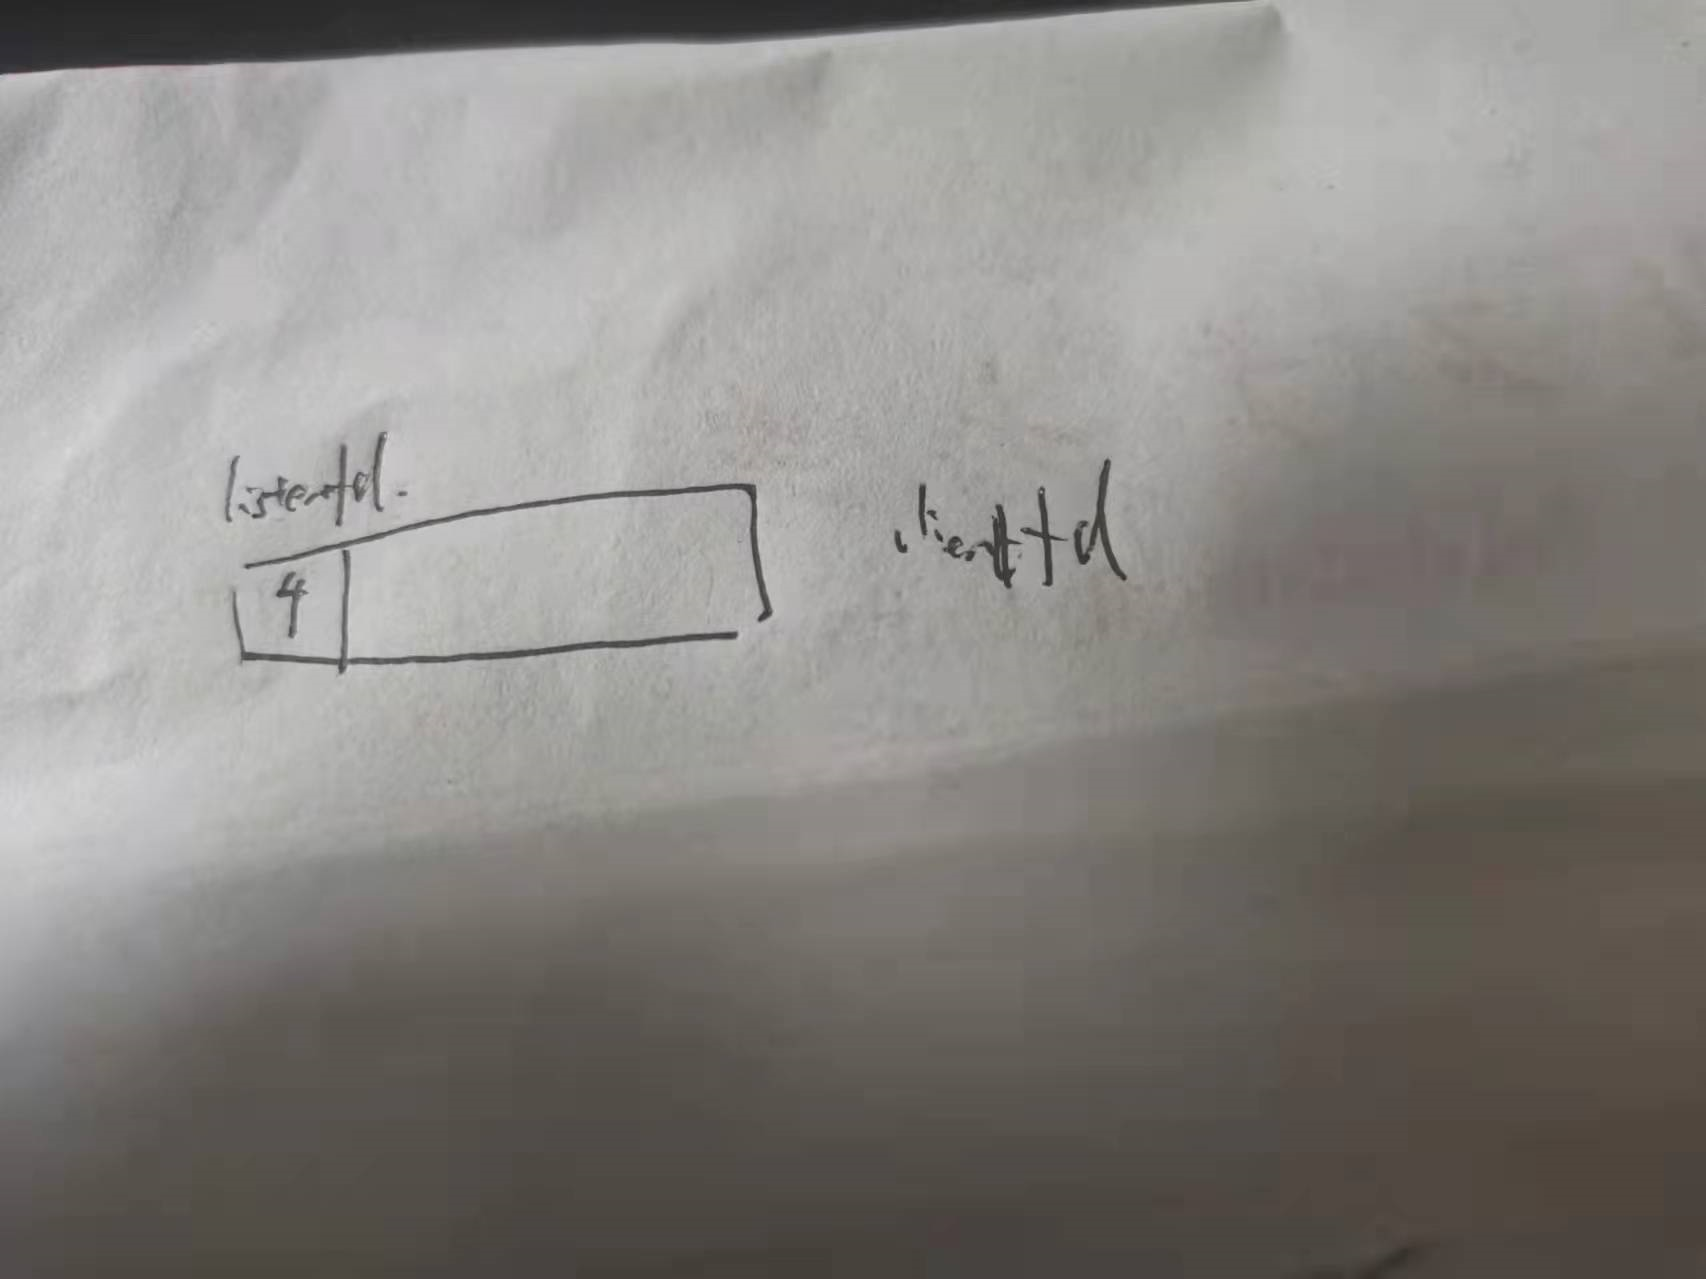 listenfd.
4
clientfd